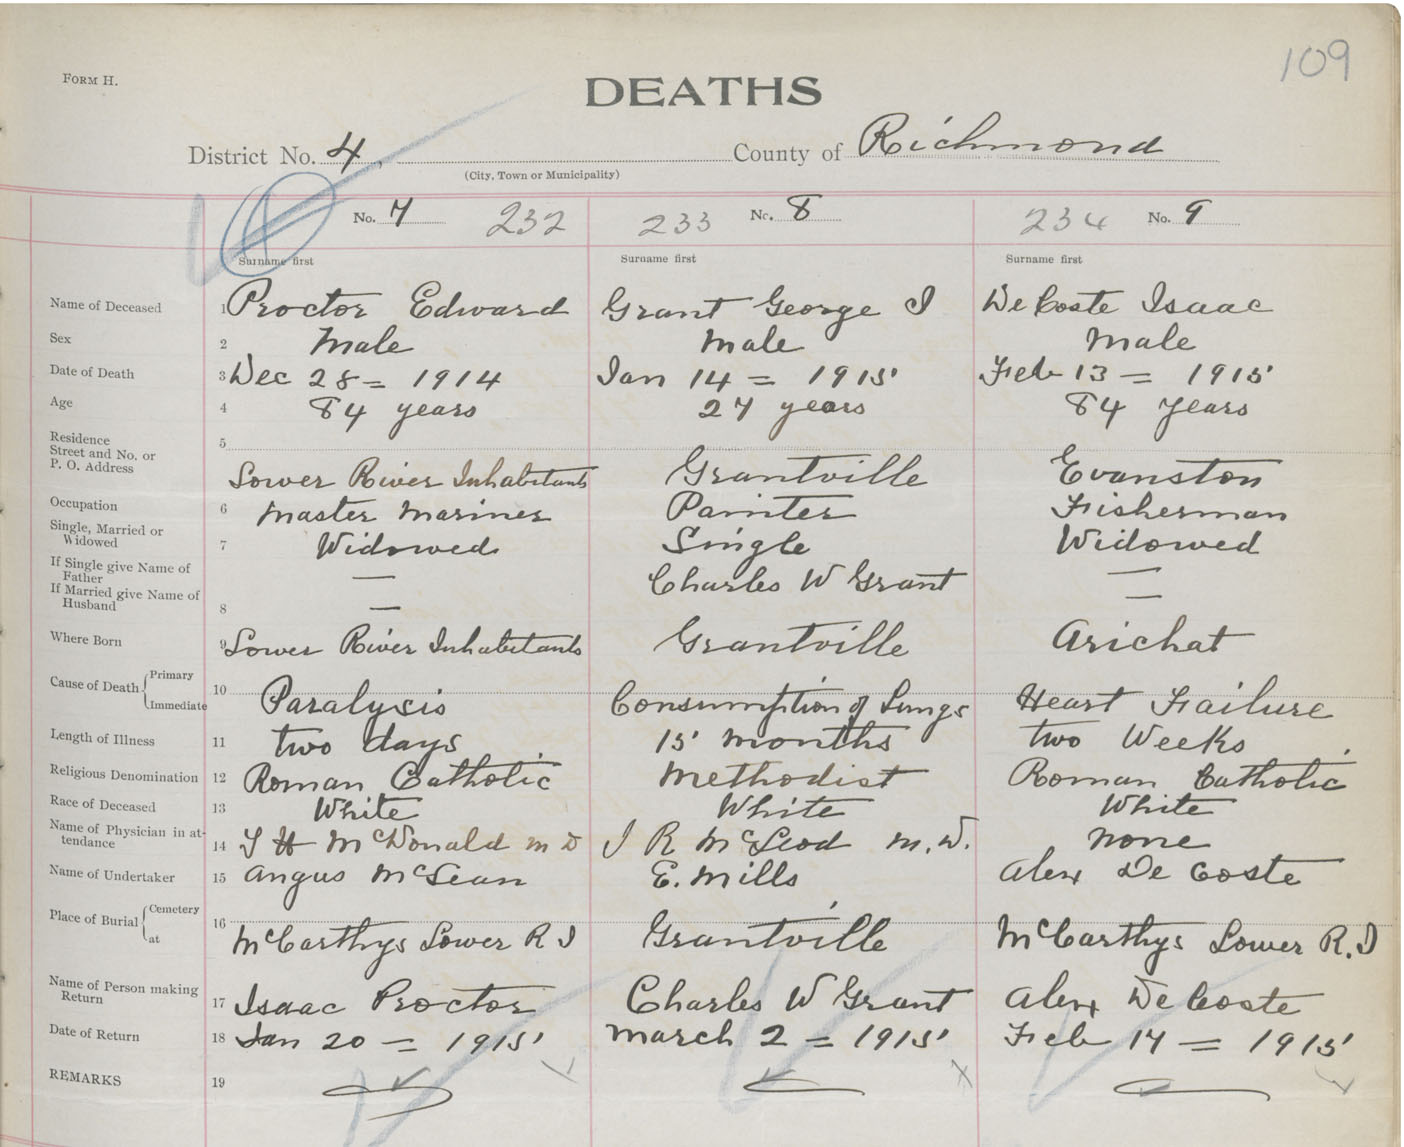 109
FORM H.
DEATHS
District No. 4, County of Richmond
(City, Town or Municipality)
No. 7 232 233 No. 8 234 No. 9
Surname first Surname first Surname first
Name of Deceased 1 Proctor Edward Grant George J DeCoste Isaac
Sex 2 Male Male Male
Date of Death 3 Dec 28 = 1914 Jan 14 = 1915 Feb 13 = 1915
Age 4 84 years 27 years 84 years
Residence
Street and No. or
P. O. Address
5 Lower River Inhabitants Grantville Evanston
Occupation 6 Master Mariner Painter Fisherman
Single, Married or
Widowed 7 Widowed Single Widowed
If Single give Name of
Father — Charles W Grant —
If Married give Name of
Husband 8 — —
Where Born 9 Lower River Inhabitants Grantville Arichat
Cause of Death Primary
Immediate 10 Paralysis Consumption of Lungs Heart Failure
Length of Illness 11 two days 15 months two Weeks
Religious Denomination 12 Roman Catholic Methodist Roman Catholic
Race of Deceased 13 White White White
Name of Physician in at-
tendance 14 McDonald M D J R McLeod M.D. none
Name of Undertaker 15 Angus McLean E. Mills Alex De Coste
Place of Burial Cemetery
at 16 McCarthys Lower R I Grantville McCarthys Lower R. I
Name of Person making
Return 17 Isaac Proctor Charles W Grant Alex DeCoste
Date of Return 18 Jan 20 = 1915 March 2 = 1915 Feb 17 = 1915
REMARKS 19